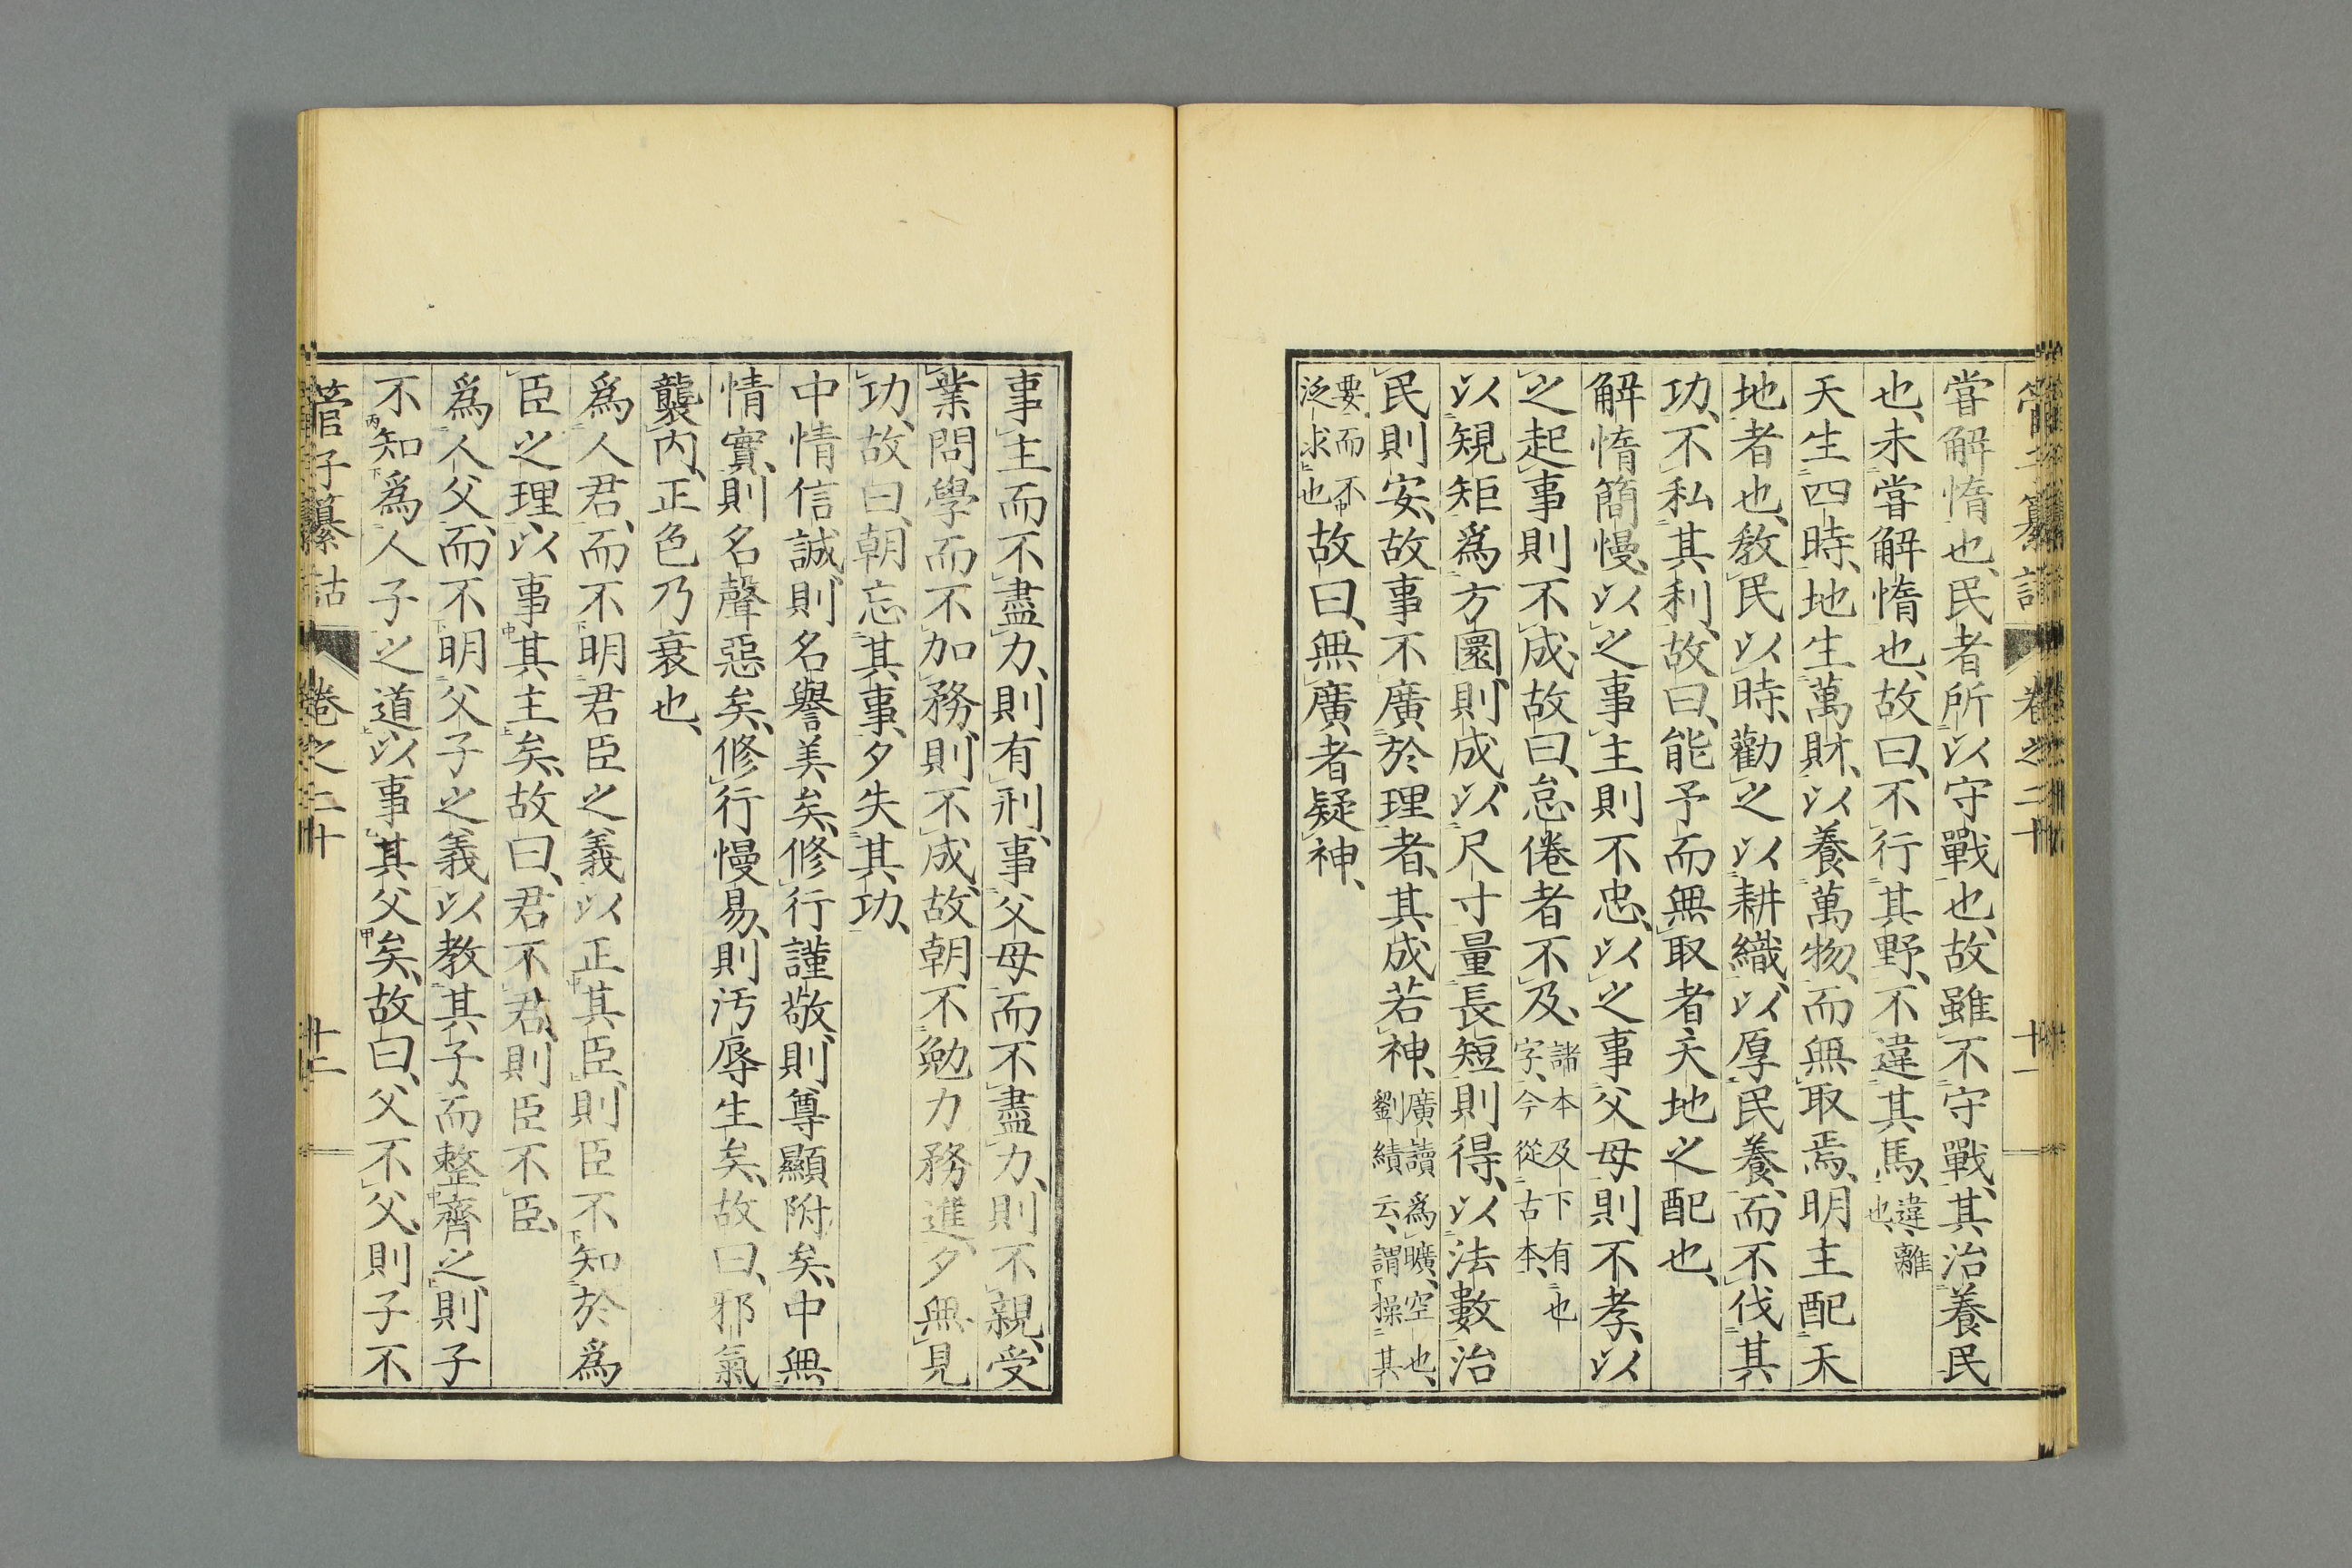 嘗解惰也、民者所以守戰也、故雖不守戰、其治養民
也、未嘗解惰也、故曰、不行其野、不違其馬、違、離也、
天生四時、地生萬財、以養萬物、而無取焉、明主配天
地者也、教民以時、勸之以耕織、以厚民養、而不伐其
功、不私其利、故曰、能予而無取者、天地之配也、
解惰簡慢、以之事主則不忠、以之事父母則不孝、以
之起事則不成、故曰、怠倦者不及、諸本及下有也字、今從古本、
以規矩爲方圜、則成、以尺寸量長短、則得、以法數治
民則安、故事不廣於理者、其成若神、廣讀爲曠、空也、劉績云、謂操其
要而不泛求也故曰、無廣者疑神、
管子纂詁 卷之二十 十一
事主而不盡力、則有刑、事父母而不盡力、則不親、受
業問學而不加務、則不成、故朝不勉力務進、夕無見
功、故曰、朝忘其事、夕失其功、
中情信誠、則名譽美矣、修行謹敬、則尊顯附矣、中無
情實、則名聲惡矣、修行慢易、則汚辱生矣、故曰、邪氣
襲內、正色乃衰也、
爲人君、而不明君臣之義以正其臣、則臣不知於爲
臣之理以事其主矣、故曰、君不君、則臣不臣、
爲人父、而不明父子之義以敎其子而整齊之、則子
不知爲人子之道以事其父矣、故曰、父不父、則子不
管子纂詁 卷之二十 十二